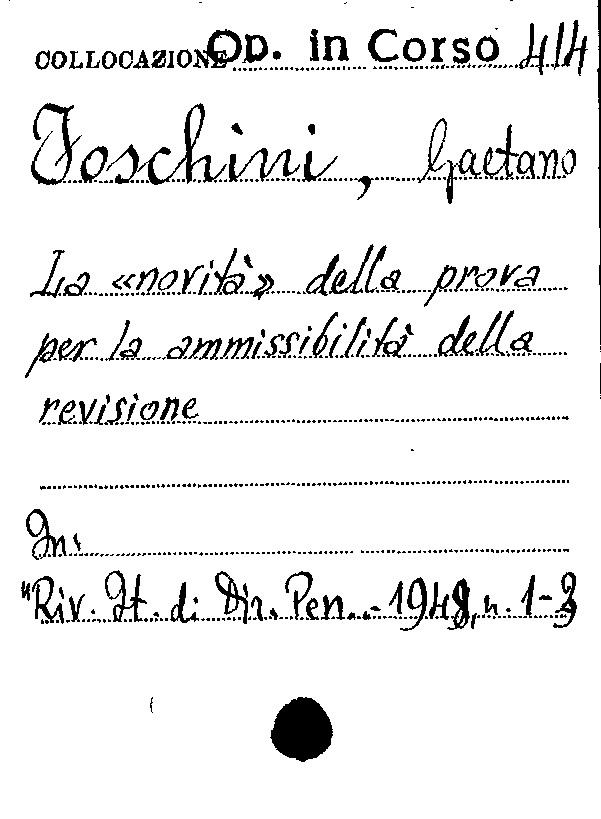 COLLOCAZIONE Op. in Corso 414
Foschini, Gaetano
La «novità» della prova
per la ammissibilità della
revisione
In:
"Riv. It. di Dir. Pen. - 1948, n. 1-3